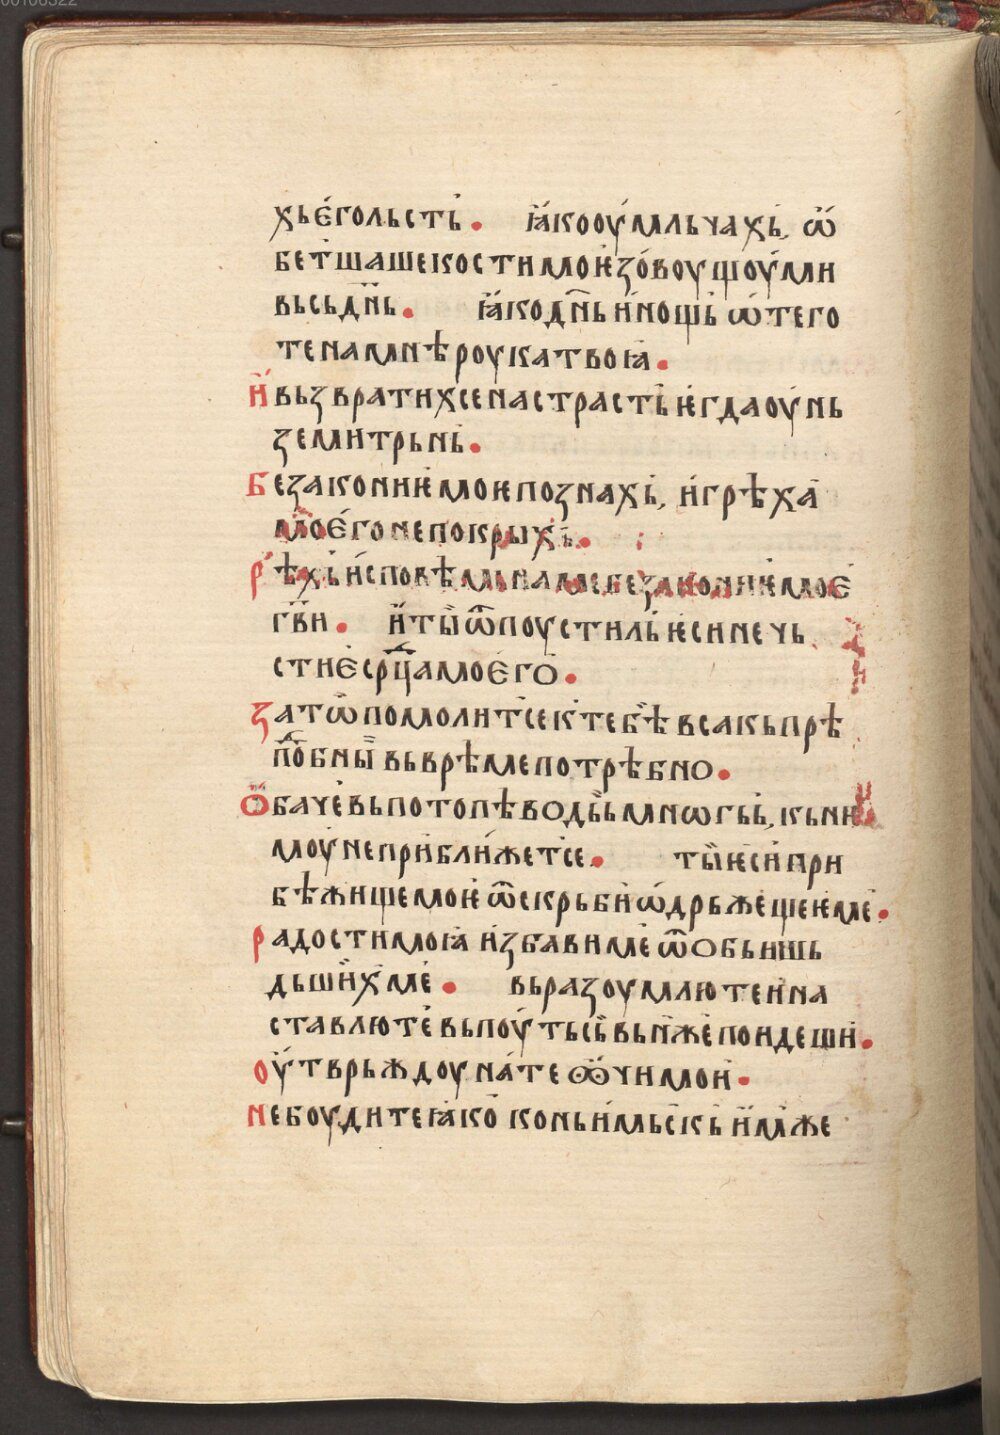 00106322
хьѥ́гольсть. ꙗ҆́кооу҆мльчахь, ѡ҆́
бет̾шашекостимоѥзо́воущоу́ми
вьсьдн҃ь. ꙗ҆́кодн҃ьи҆нощь ѡ҆тего
тенамнѣроукатвоꙗ.
И҆вьзвратихсенастрасть ѥ҆гдаоу҆нь
земитрьнь.
Безакониѥмоѥпознахь, и҆грѣха
моѥ́гонепокрыхь.
Рѣхь и҆сповѣмьнамебезакониѥмоѥ
гв҃и. и҆ты ѿпоустильѥсинечь
стиѥср҃цамоѥго.
Затѡ помолит̾сек̾тебѣ всакьпрѣ
пⷣобныи вьврѣмепотрѣбно.
Ѻ҆бачевьпотопѣводььмнѡгьь, кьнѥ
моу҆неприближет̾се. ты ѥсипри
бѣжищемоѥ ѿскрьби ѡ҆дрьжещеѥме.
Радостимоꙗ и҆збавиме ѿобьишь
дьших̾ме. вьразоумлютеи҆на
ставлютевьпоу҆тьсьвьн̾жепоидеши.
Оу҆тврьждоунатеꙮчимои.
Небоудитеꙗ҆ко коньи҆мьскьи҆мже